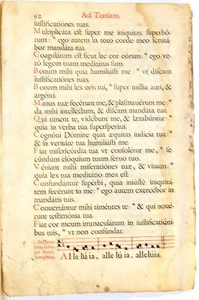 92 Ad Tertiam.
iustificationes tuas.
Multiplicata est super me iniquitas superbó-
rum: * ego autem in toto corde meo scrutá-
bor mandata tua.
Coagulatum est sicut lac cor eórum: * ego ve-
rò legem tuam meditatus sum
Bonum mihi quia humiliasti me: * vt discam
iustificationes tuas.
Bonum mihi lex oris tui, * super millia auri, &
argenti
Manus tuæ fecérunt me, & plasmauérunt me:*
da mihi intelléctum, & discam mandata tua.
Qui timent te, vidébunt me, & lætabúntur:*
quia in verba tua supersperaui
Cognóui Domine quia æquitas iudicia tua: *
& in veritate tua humiliasti me
Fiat misericordia tua vt consoletur me, * se-
cúndum elóquium tuum seruo tuo
Véniant mihi miseratiónes tuæ, & viuam: *
quia lex tua meditatio mea est.
Confundantur supérbi, quia iniústè iniquita-
tem fecérunt in me: * ego autem exercébor in
mandatis tuis.
Conuertántur mihi timéntes te: * & qui noué-
runt testimónia tua.
Fiat cor meum immaculatum in iustificatióni-
bus tuis, * vt non confundar.
Alleluia, alleluia, alleluia.